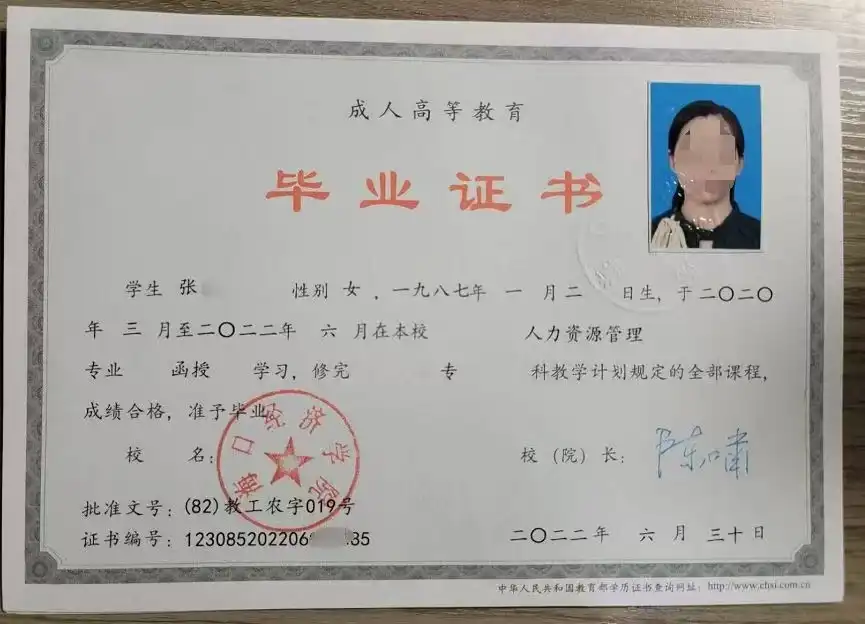 成人高等教育
毕业证书
学生 张 性别 女 ,一九八七年 一 月二 日生,于二〇二〇
年 三 月至二〇二二年 六 月在本校 人力资源管理
专业 函授 学习,修完 专 科教学计划规定的全部课程,
成绩合格,准予毕业
校 名: 校(院)长:
口经济学院
批准文号:(82)教工农字019号
证书编号:123085202206 35
二〇二二年 六 月 三十日
中华人民共和国教育部学历证书查询网址:http://www.chsi.com.cn